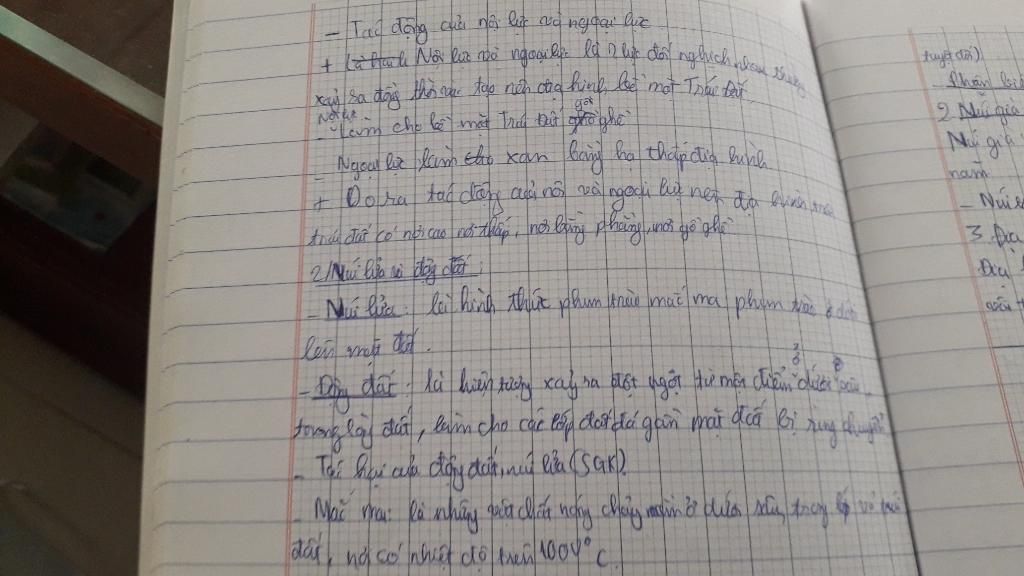 - Tác động của nội lực và ngoại lực
+ Nội lực và ngoại lực là 2 lực đối nghịch nhau thường
xảy ra đồng thời tạo nên địa hình bề mặt Trái đất.
- Nội lực làm cho bề mặt Trái đất gồ ghề
- Ngoại lực làm san bằng hạ thấp địa hình
+ Do ra tác động của nội và ngoại lực nên địa hình trên
trái đất có nơi cao nơi thấp, nơi bằng phẳng, nơi gồ ghề
2/ Núi lửa và động đất:
- Núi lửa: là hình thức phun trào mắc ma phun trào ở dưới
lên mặt đất.
- Động đất: là hiện tượng xảy ra đột ngột từ một điểm ở dưới sâu,
trong lòng đất, làm cho các lớp đất đá gần mặt đất bị rung chuyển
- Tác hại của động đất, núi lửa (SGK)
- Mắc ma: là những vật chất nóng chảy nằm ở dưới sâu, trong lớp vỏ trái
đất, nơi có nhiệt độ trên 1000°C.
tuyệt đối)
- Phân
2. Núi già
Núi già
năm
- Núi
3. Địa
Địa